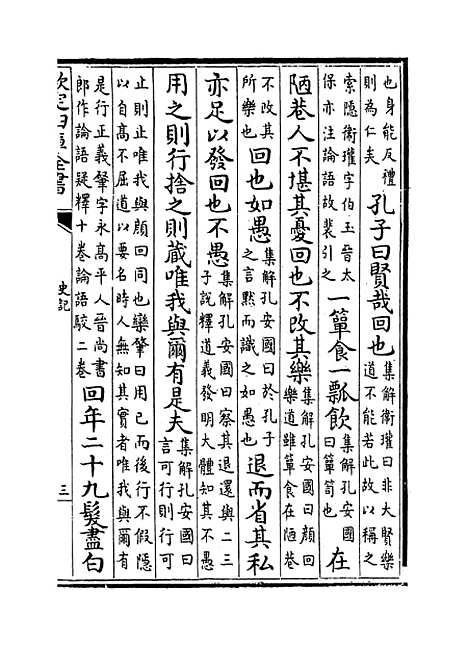 也身能反禮
則為仁矣
孔子曰賢哉回也
集解衛瓘曰非大賢樂
道不能若此故以稱之
索隱衛瓘字伯玉晉太
保亦注論語故裴引之
一簞食一瓢飲
集解孔安國
曰簞笥也
在
陋巷人不堪其憂回也不改其樂
集解孔安國曰顔回
樂道雖簞食在陋巷
不改其
所樂也
回也如愚
集解孔安國曰於孔子
之言黙而識之如愚也
退而省其私
亦足以發回也不愚
集解孔安國曰察其退還與二三
子說釋道義發明大體知其不愚
用之則行捨之則藏唯我與爾有是夫
集解孔安國曰
言可行則行可
止則止唯我與顔回同也欒肇曰用已而後行不假隱
以自髙不屈道以要名時人無知其實者唯我與爾有
是行正義肇字永髙平人晉尚書
郎作論語疑釋十卷論語駮二卷
回年二十九髮盡白
欽定四庫全書
史記
三